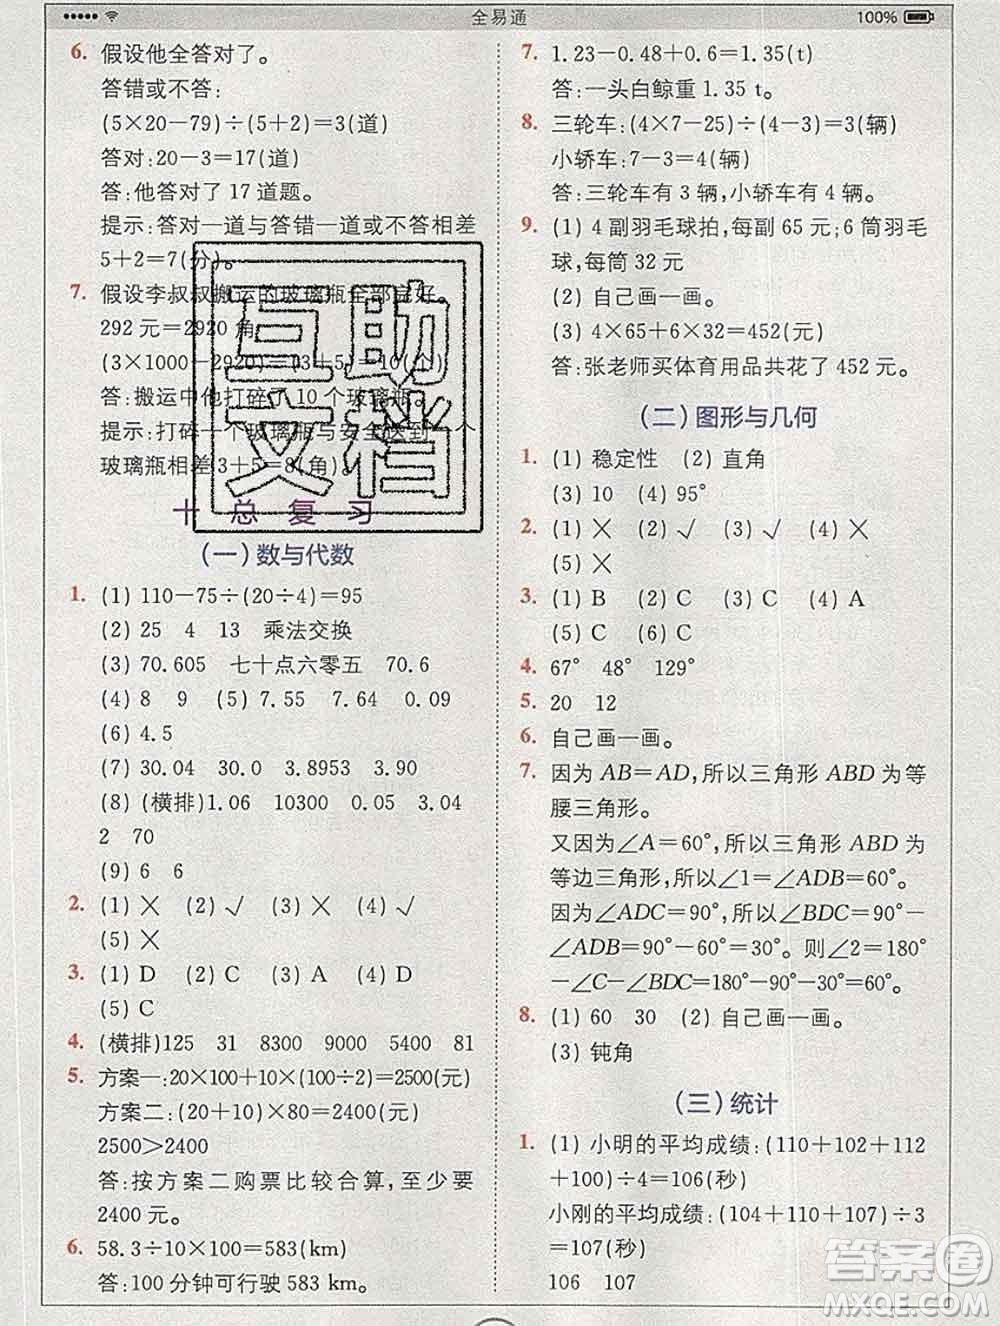 全易通
100%
6. 假设他全答对了。
答错或不答:
(5×20-79)÷(5+2)=3(道)
答对:20-3=17(道)
答:他答对了 17 道题。
提示:答对一道与答错一道或不答相差
5+2=7(分)。
7. 假设李叔叔搬运的玻璃瓶全部完好。
292 元=2920 角
(3×1000-2920)÷(3+5)=10(个)
答:搬运中他打碎了 10 个玻璃瓶。
提示:打碎一个玻璃瓶与安全送到一个
玻璃瓶相差3+5=8(角)。
十 总 复 习
(一)数与代数
1. (1) 110-75÷(20÷4)=95
(2) 25 4 13 乘法交换
(3) 70.605 七十点六零五 70.6
(4) 8 9 (5) 7.450 7.64 0.09
(6) 4.5
(7) 30.04 30.0 3.8953 3.90
(8) (横排)1.06 10300 0.04 8
2 70
(9) 6 6
2. (1) × (2) √ (3) × (4) √
(5) ×
3. (1) D (2) C (3) A (4) D
(5) C
4. (横排)125 31 8300 9000 5400 81
5. 方案一:20×100+10×(100÷2)=2500(元)
方案二:(20+10)×80=2400(元)
2500>2400
答:按方案二购票比较合算,至少要
2400 元。
6. 58.3÷10×100=583(km)
答:100 分钟可行驶 583 km。
7. 1.23-0.48+0.6=1.35(t)
答:一头白鲸重 1.35 t。
8. 三轮车:(4×7-25)÷(4-3)=3(辆)
小轿车:7-3=4(辆)
答:三轮车有 3 辆,小轿车有 4 辆。
9. (1) 4 副羽毛球拍,每副 65 元;6 筒羽毛
球,每筒 32 元
(2) 自己画一画。
(3) 4×65+6×32=452(元)
答:张老师买体育用品共花了 452 元。
(二)图形与几何
1. (1) 稳定性 (2) 直角
(3) 10 (4) 95°
2. (1) × (2) √ (3) √ (4) ×
(5) ×
3. (1) B (2) C (3) C (4) A
(5) C (6) C
4. 67° 48° 129°
5. 20 12
6. 自己画一画。
7. 因为 AB=AD,所以三角形 ABD 为等
腰三角形。
又因为∠A=60°,所以三角形 ABD 为
等边三角形,所以∠1=∠ADB=60°。
因为∠ADC=90°,所以∠BDC=90°-
∠ADB=90°-60°=30°。则∠2=180°
-∠C-∠BDC=180°-90°-30°=60°。
8. (1) 60 30 (2) 自己画一画。
(3) 钝角
(三)统计
1. (1) 小明的平均成绩:(110+102+112
+100)÷4=106(秒)
小刚的平均成绩:(104+110+107)÷3
=107(秒)
106 107
互助
文档
答案圈
MXQE.COM